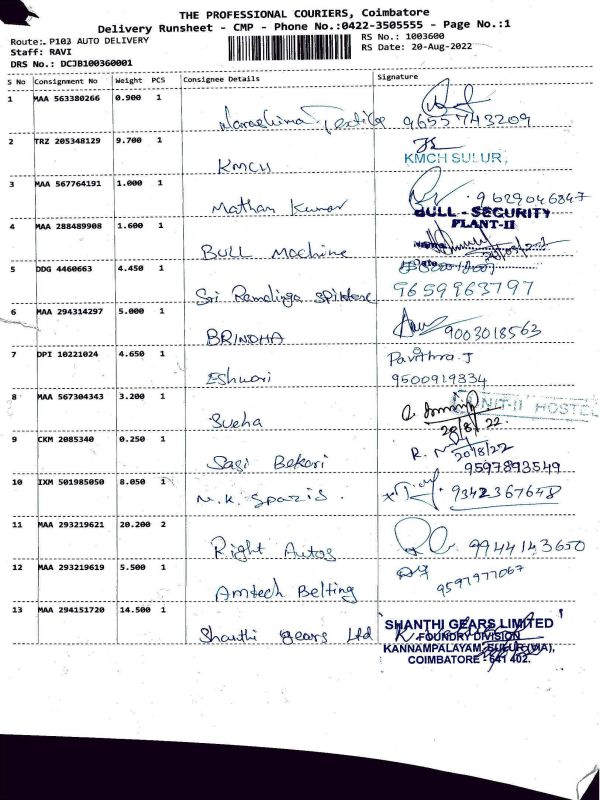 THE PROFESSIONAL COURIERS, Coimbatore
Delivery Runsheet - CMP - Phone No.:0422-3505555 - Page No.:1
Route:- P103 AUTO DELIVERY
RS No.: 1003600
Staff: RAVI
RS Date: 20-Aug-2022
DRS No.: DCJB100360001
S No Consignment No Weight PCS Consignee Details Signature
1 MAA 563380266 0.900 1
9655743209
2 TRZ 205348129 9.700 1
KMCH KMCH SULUR,
3 MAA 567764191 1.000 1
Mathan Kumar 9629046847
BULL - SECURITY
PLANT-II
4 MAA 288489908 1.600 1
BULL Machine
5 DDG 4460663 4.450 1
Sri Ramalinga 9659963797
6 MAA 294314297 5.000 1
BRINDHA 9003018563
7 DPI 10221024 4.650 1
Pavithra.J
Eshwari 9500919334
8 MAA 567304343 3.200 1
UNIT-II HOSTEL
Sueha 20/8/22.
9 CKM 2085340 0.250 1
20/8/22
Sasi Bekari 9597893549
10 IXM 501985050 8.050 1
N.K. Spazis. 9342367648
11 MAA 293219621 20.200 2
Right Autos 9944143650
12 MAA 293219619 5.500 1
Amtech Belting 9597977067
13 MAA 294151720 14.500 1
Shanthi gears Ltd
SHANTHI GEARS LIMITED
FOUNDRY DIVISION
KANNAMPALAYAM, SULUR (VIA),
COIMBATORE - 641 402.